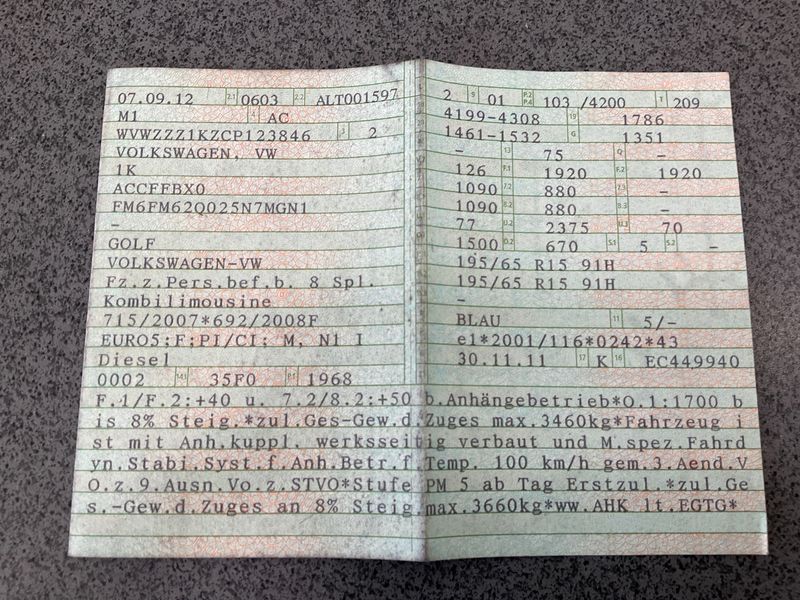 07.09.12 2.1 0603 2.2 ALT001597
M1 4 AC
WVWZZZ1KZCP123846 3 2
VOLKSWAGEN, VW
1K
ACCFFBX0
FM6FM62Q025N7MGN1
-
GOLF
VOLKSWAGEN-VW
Fz.z.Pers.bef.b. 8 Spl.
Kombilimousine
715/2007*692/2008F
EURO5;F;PI/CI; M, N1 I
Diesel
0002 14.1 35F0 P.1 1968
2 9 01 P.2 P.4 103 /4200 T 209
4199-4308 19 1786
1461-1532 G 1351
- 13 75 Q -
126 F.1 1920 F.2 1920
1090 7.2 880 7.3 -
1090 8.2 880 8.3 -
77 U.2 2375 U.3 70
1500 O.2 670 S.1 5 S.2 -
195/65 R15 91H
195/65 R15 91H
-
BLAU 11 5/-
e1*2001/116*0242*43
30.11.11 17 K 16 EC449940
F.1/F.2:+40 u. 7.2/8.2:+50 b.Anhängebetrieb*O.1:1700 b
is 8% Steig.*zul.Ges-Gew.d.Zuges max.3460kg*Fahrzeug i
st mit Anh.kuppl. werksseitig verbaut und M.spez.Fahrd
yn.Stabi.Syst.f.Anh.Betr.f.Temp. 100 km/h gem.3.Aend.V
O.z.9.Ausn.Vo.z.STVO*Stufe PM 5 ab Tag Erstzul.*zul.Ge
s.-Gew.d.Zuges an 8% Steig.max.3660kg*ww.AHK lt.EGTG*